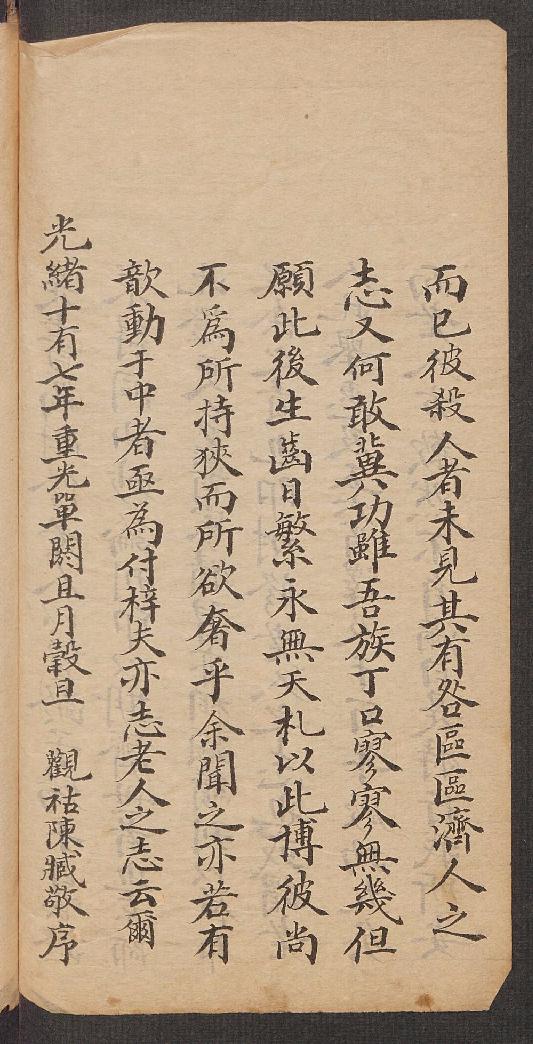 而已彼殺人者未見其有咎區區濟人之
志又何敢冀功雖吾族丁口寥寥無幾但
願此後生齒日繁永無夭札以此博彼尚
不爲所持狹而所欲奢乎余聞之亦若有
歆動于中者亟為付梓夫亦志老人之志云爾
光緒十有七年重光單閼且月穀旦　觀祜陳臧敬序